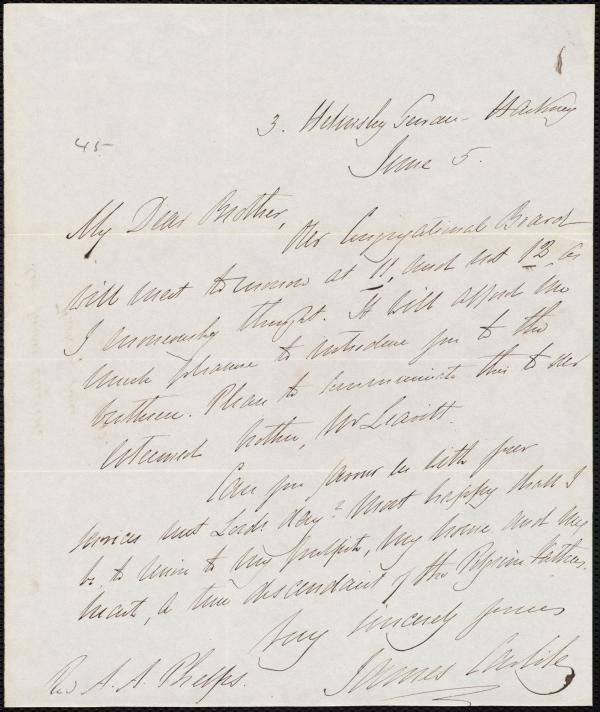 3. Helmsley Terrace - Hackney
45
June 5.
My Dear Brother,
Our Congregational Board
will meet tomorrow at 11, and not 12 as
I erroneously thought. It will afford me
much pleasure to introduce you to the
brethren. Please to communicate this to our
esteemed brother, Mr Leavitt.
Can you favour us with your
services next Lords day? Most happy shall I
be, to welcome to my pulpit, my home, and my
heart, a true descendant of the Pilgrim Fathers.
Very sincerely yours
James Carlile
Rev A. A. Phelps.